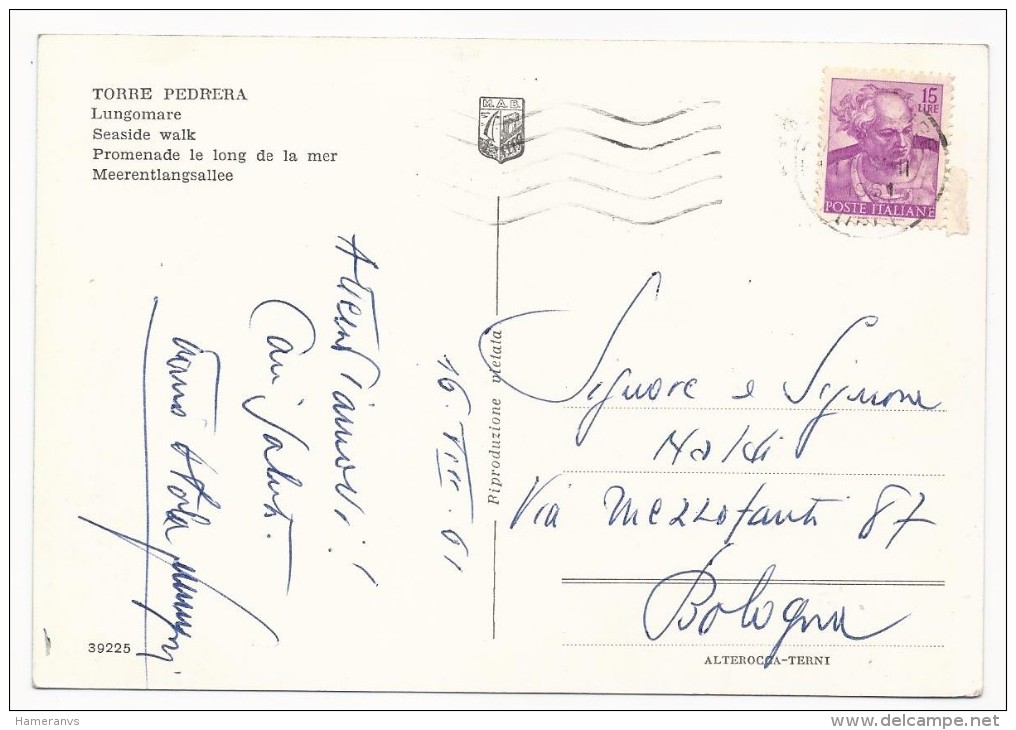 TORRE PEDRERA
Lungomare
Seaside walk
Promenade le long de la mer
Meerentlangsallee
M.A.B.
15
LIRE
POSTE ITALIANE
Riproduzione vietata
16.VIII.61
Cari saluti.
Signore e Signora
Naldi
Via Mezzofanti 87
Bologna
39225
ALTEROCCA-TERNI
Hameranvs
www.delcampe.net